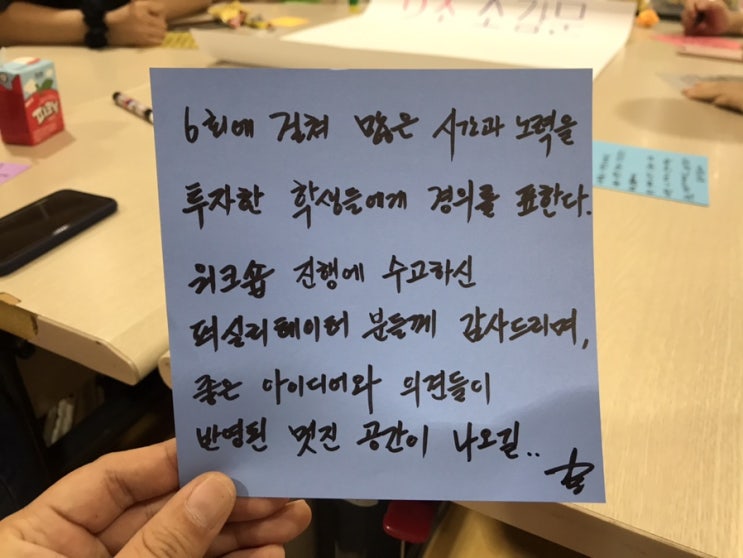 6회에 걸쳐 많은 시간과 노력을
투자한 학생들에게 경의를 표한다.
워크숍 진행에 수고하신
퍼실리테이터 분들께 감사드리며,
좋은 아이디어와 의견들이
반영된 멋진 공간이 나오길..